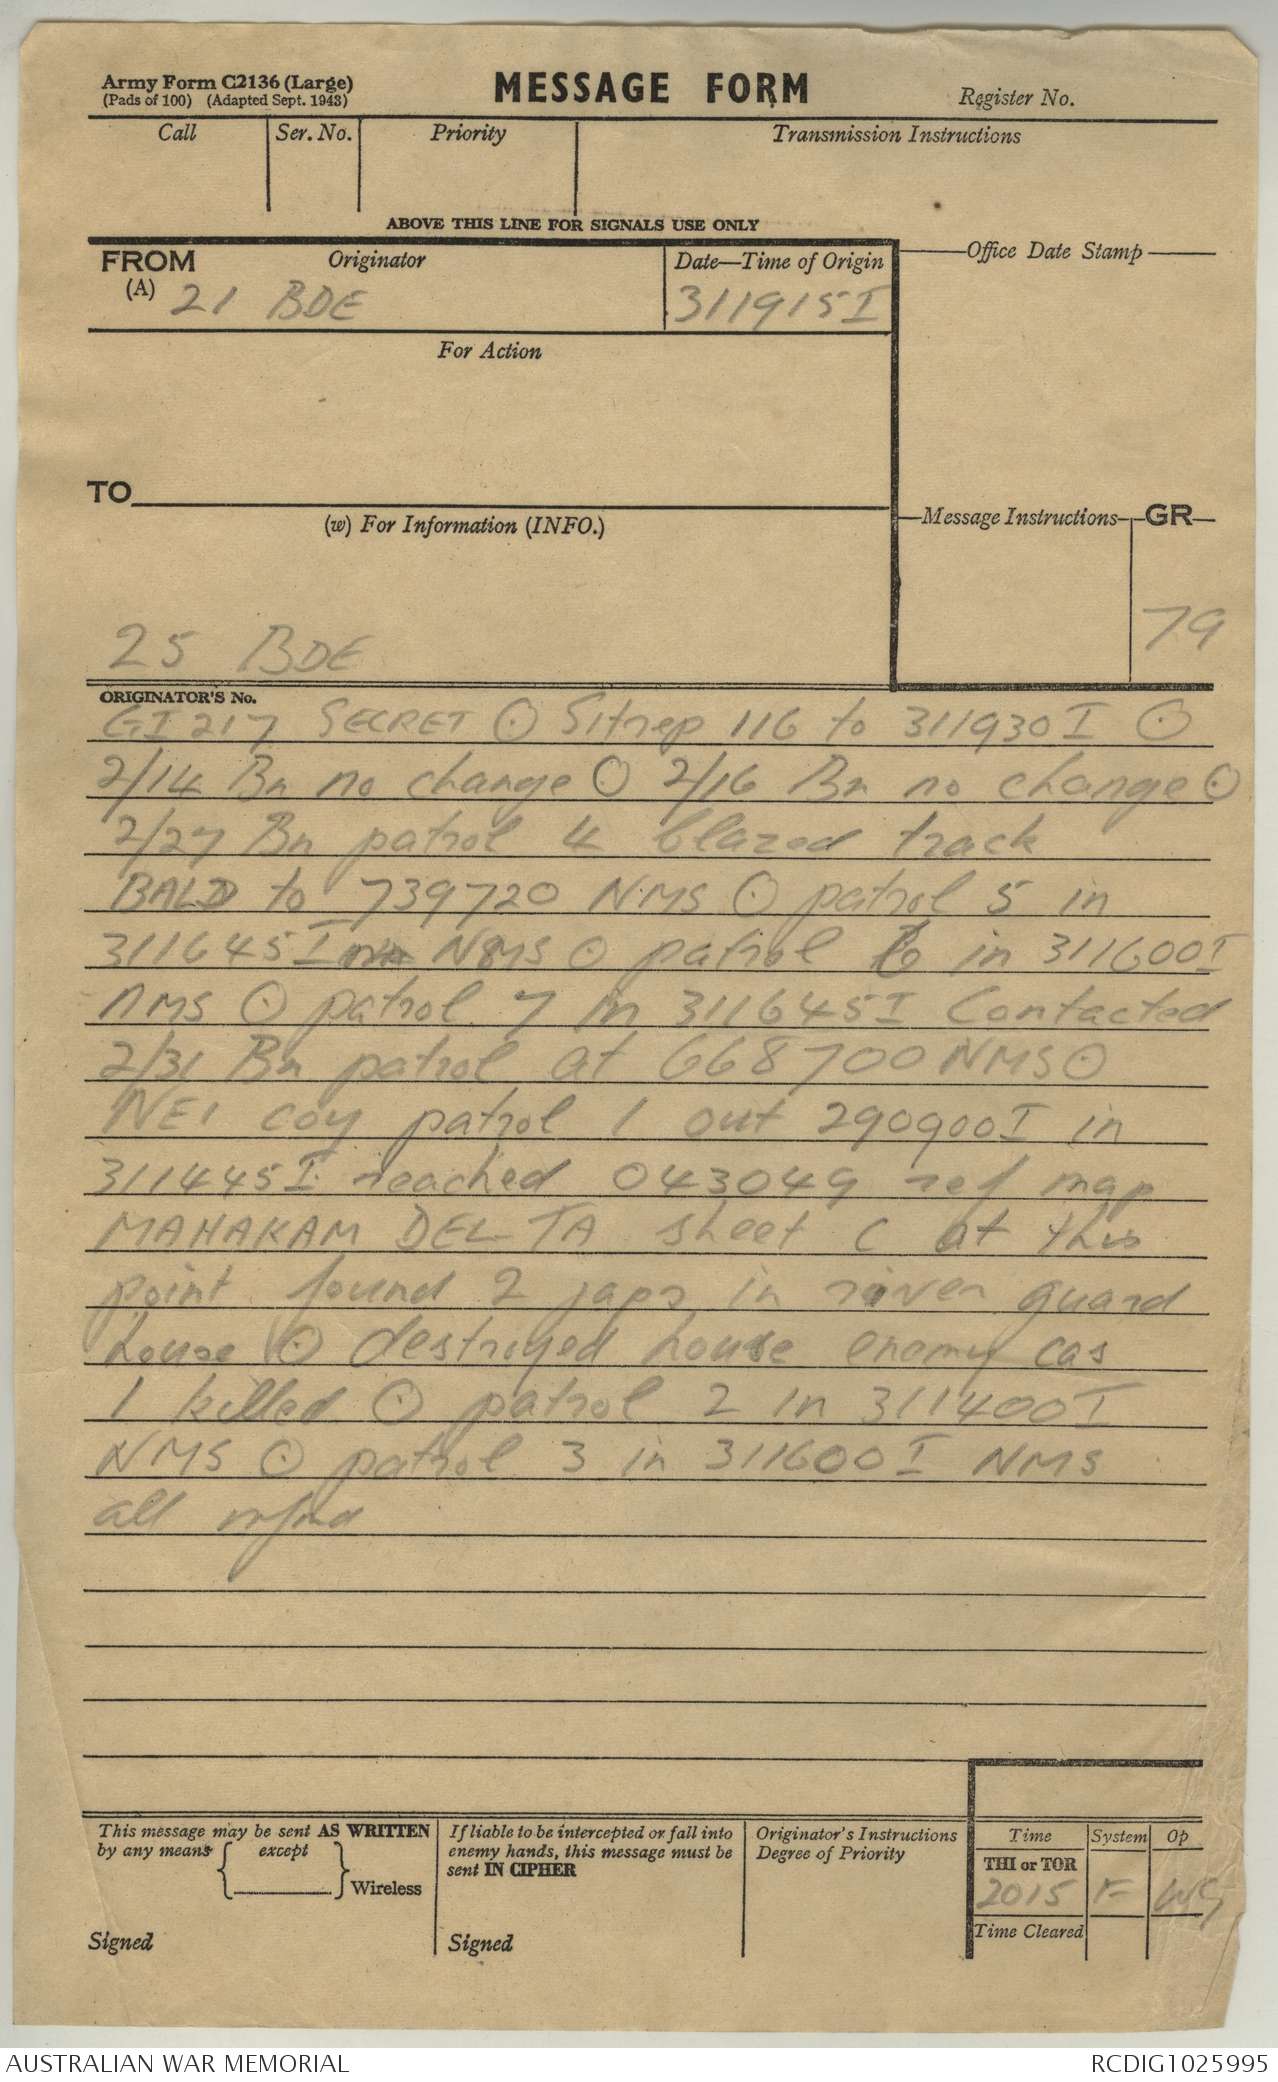 Army Form C2136 (Large)
(Pads of 100) (Adapted Sept. 1943)
MESSAGE FORM
Register No.
Call
Ser. No.
Priority
Transmission Instructions
ABOVE THIS LINE FOR SIGNALS USE ONLY
FROM
(A)
Originator
21 BDE
Date—Time of Origin
311915I
Office Date Stamp
For Action
TO
(w) For Information (INFO.)
Message Instructions
GR
79
25 BDE
ORIGINATOR'S No.
GI217 SECRET ⊙ Sitrep 116 to 311930I ⊙
2/14 Bn no change ⊙ 2/16 Bn no change ⊙
2/27 Bn patrol 4 blazed track
BALD to 739720 NMS ⊙ patrol 5 in
311645I NMS ⊙ patrol 6 in 311600I
NMS ⊙ patrol 7 in 311645I Contacted
2/31 Bn patrol at 668700 NMS ⊙
NEI coy patrol 1 out 290900I in
311445I reached 043049 ref map
MAHAKAM DELTA sheet C at this
point found 2 japs in river guard
house ⊙ destroyed house enemy cas
1 killed ⊙ patrol 2 in 311400I
NMS ⊙ patrol 3 in 311600I NMS
all infmd
This message may be sent AS WRITTEN
by any means { except
} Wireless
Signed
If liable to be intercepted or fall into
enemy hands, this message must be
sent IN CIPHER
Signed
Originator's Instructions
Degree of Priority
Time
System
Op
THI or TOR
2015
F
WG
Time Cleared
AUSTRALIAN WAR MEMORIAL
RCDIG1025995